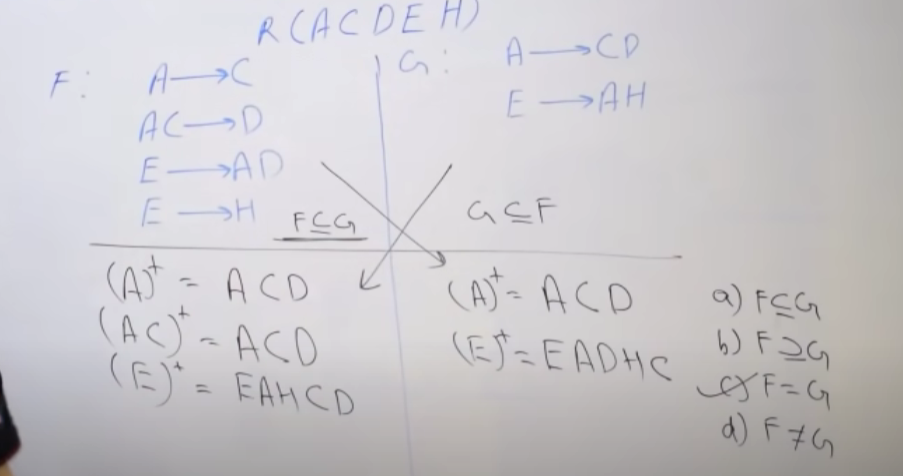 R(ACDEH)
F: A→C
AC→D
E→AD
E→H
F⊆G
G: A→CD
E→AH
G⊆F
(A)⁺ = ACD
(AC)⁺ = ACD
(E)⁺ = EAHCD
(A)⁺ = ACD
(E)⁺ = EADHC
a) F⊆G
b) F⊇G
c) F=G
d) F≠G